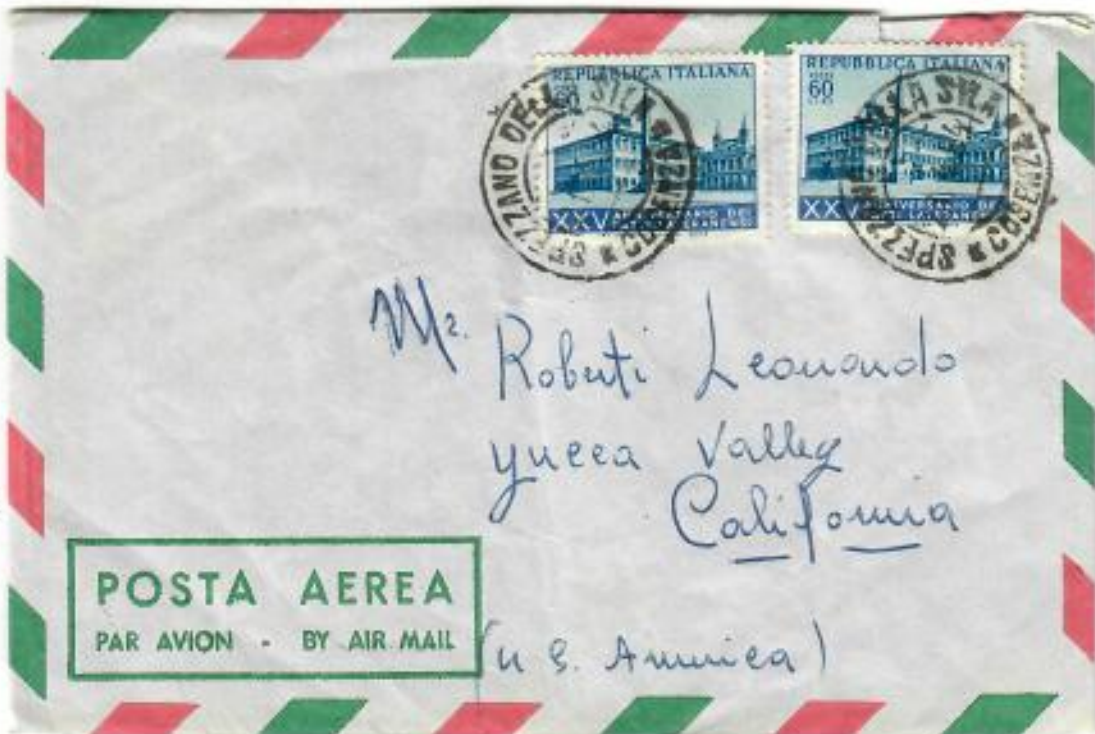 REPUBBLICA ITALIANA
POSTE
60
LIRE
XXV ANNIVERSARIO DEI
PATTI LATERANENSI
REPUBBLICA ITALIANA
POSTE
60
LIRE
XXV ANNIVERSARIO DEI
PATTI LATERANENSI
SPEZZANO DELLA SILA * COSENZA *
SPEZZANO DELLA SILA * COSENZA *
Mr. Roberti Leonardo
Yucca Valley
California
(U S. America)
POSTA AEREA
PAR AVION - BY AIR MAIL